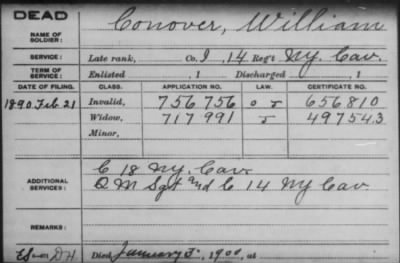 DEAD
NAME OF SOLDIER: Conover, William
SERVICE: Late rank, Co. I, 14 Reg't Ny. Cav.
TERM OF SERVICE: Enlisted , 1 Discharged , 1
DATE OF FILING. CLASS. APPLICATION NO. LAW. CERTIFICATE NO.
1890 Feb 21 Invalid, 756756 656810
Widow, 717991 497543
Minor,
ADDITIONAL SERVICES: C 18 Ny. Cav.
Q M Sgt and C 14 Ny Cav
REMARKS:
Died January 5, 1900, at